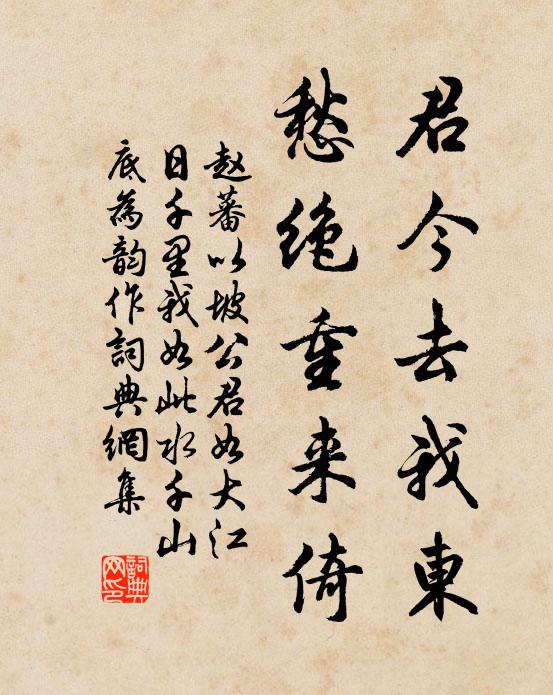 君今去我東
愁絶重来倚
赵蕃以坡公君如大江
日千里我如此水千山
底為韵作詞典網集
詞典网印